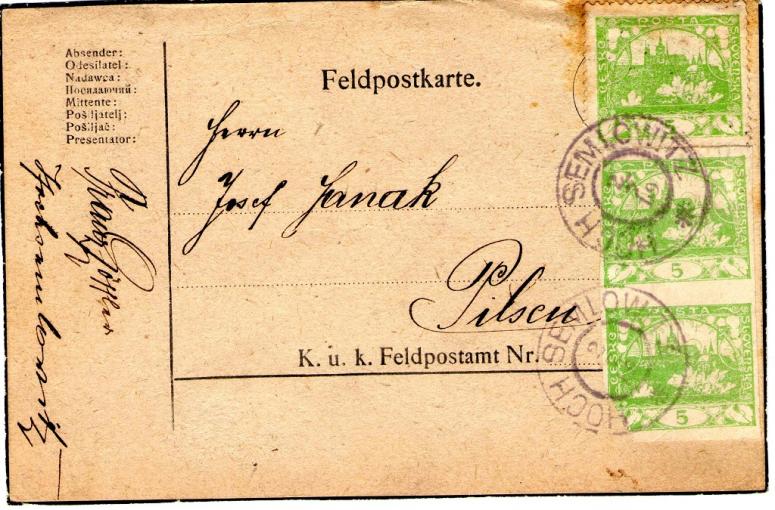 Absender:
Odesílatel:
Nadawca:
Посилаючий:
Mittente:
Pošiljatelj:
Pošiljač:
Presentator:
Feldpostkarte.
Herrn
Josef Janak
Pilsen
K. u. k. Feldpostamt Nr.
Franz
Hochsemlowitz
POSTA
ČESKO
SLOVENSKÁ
HOCH SEMLOWITZ
ČESKO
SLOVENSKÁ
5
HOCH SEMLOW
POSTA
SLOVENSKÁ
5